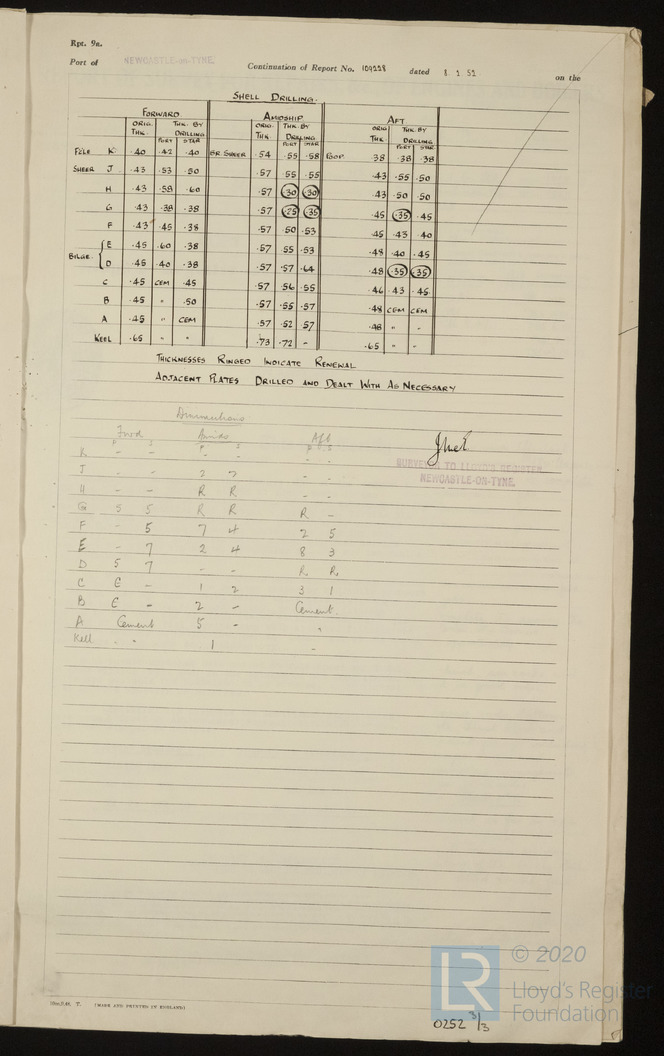 Rpt. 9a.
Port of NEWCASTLE-ON-TYNE. Continuation of Report No. 109228 dated 8.1.52 on the
SHELL DRILLING.
FORWARD AMIDSHIP AFT
ORIG. THK. THK. BY DRILLING ORIG. THK. THK. BY DRILLING ORIG THK. THK. BY DRILLING
PORT STAR PORT STAR PORT STAR
F'CLE K .40 .42 .40 BR. SHEER .54 .55 .58 POOP .38 .38 .38
SHEER J .43 .53 .50 .57 .55 .55 .43 .55 .50
H .43 .58 .60 .57 .30 .30 .43 .50 .50
G .43 .38 .38 .57 .25 .35 .45 .35 .45
F .43 .45 .38 .57 .50 .53 .45 .43 .40
E .45 .60 .38 .57 .55 .53 .48 .40 .45
BILGE. D .45 .40 .38 .57 .57 .64 .48 .35 .35
C .45 CEM .45 .57 .56 .55 .46 .43 .45
B .45 " .50 .57 .55 .57 .48 CEM CEM
A .45 " CEM .57 .52 57 .48 " "
KEEL .65 " " .73 .72 - .65 " "
THICKNESSES RINGED INDICATE RENEWAL
ADJACENT PLATES DRILLED AND DEALT WITH AS NECESSARY
Diminutions
Forwd Amids Aft
P S P S P S
K - - - - - -
J - - 2 2 - -
H - - R R - -
G 5 5 R R R -
F - 5 7 4 2 5
E - 7 2 4 8 3
D 5 7 - - R R
C C - 1 2 3 1
B C - 2 - Cement.
A Cement 5 - "
Keel - " 1 -
SURVEYOR TO LLOYD'S REGISTER
NEWCASTLE-ON-TYNE.
T. (MADE AND PRINTED IN ENGLAND)
LR
© 2020
Lloyd's Register
Foundation
0252 3/3